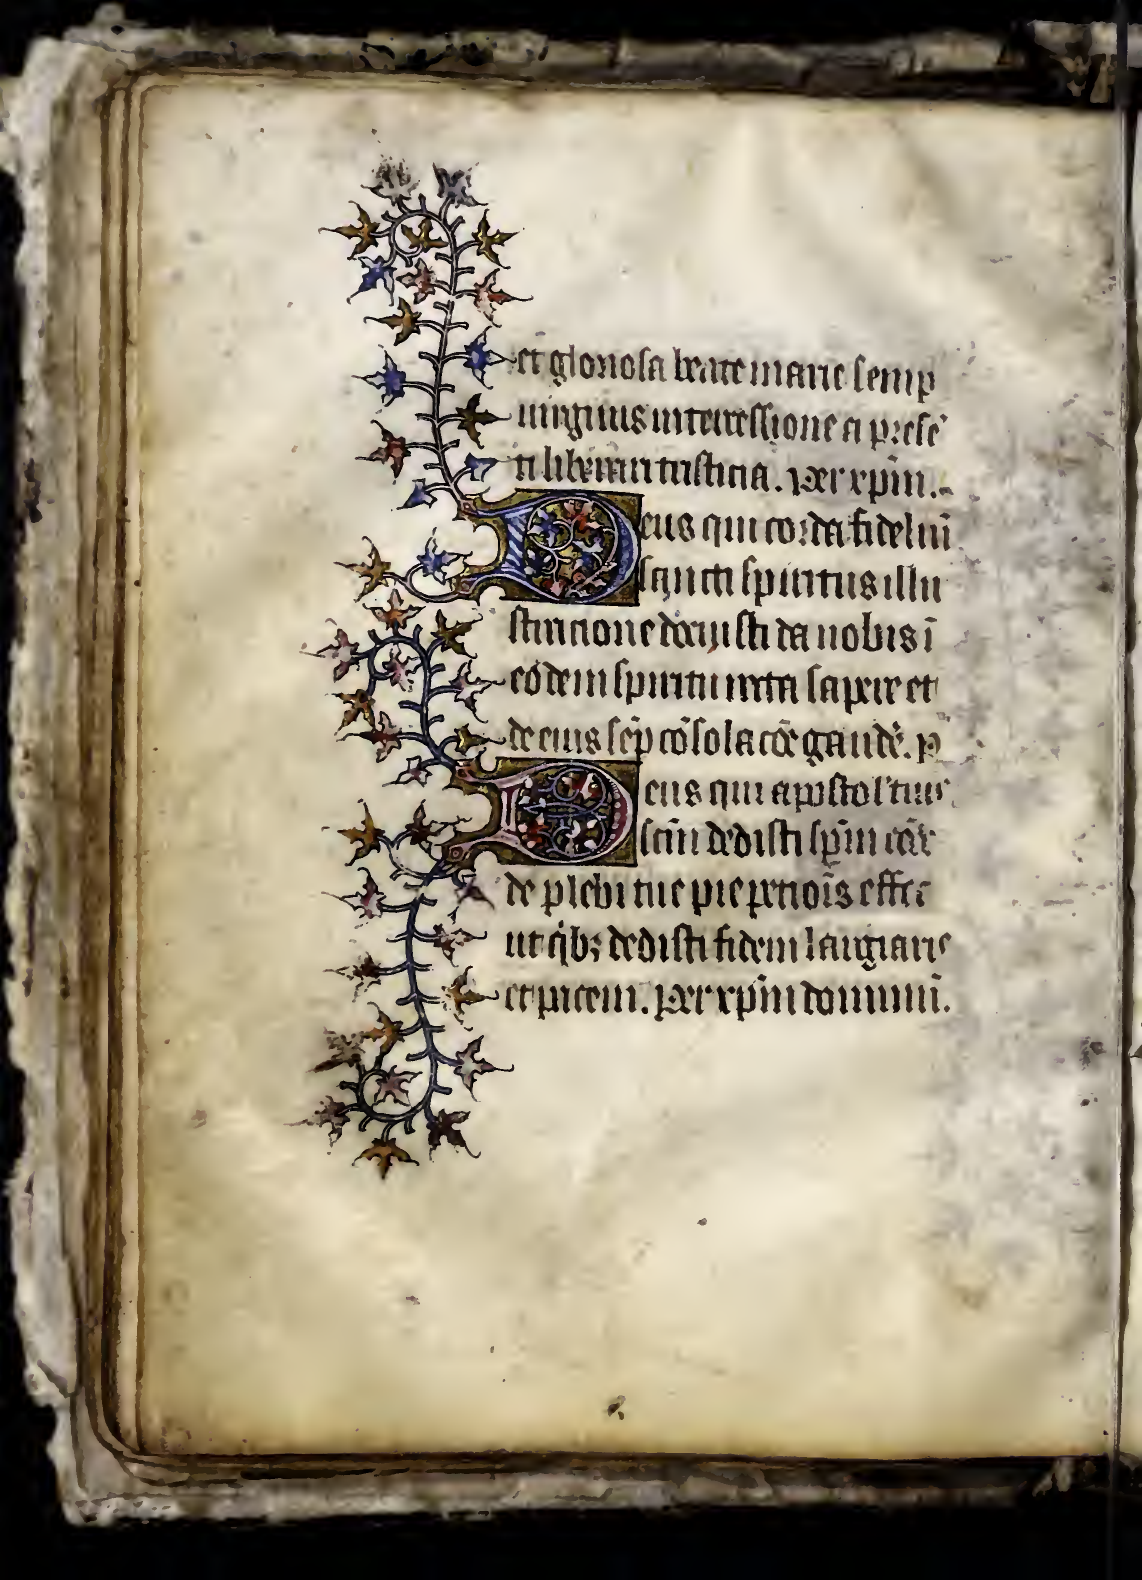 et gloriosa beate marie semp
uirginis intercessione a prese̅
ti liberari tristicia. Per xp̅m.
Deus qui corda fideliu̅
sancti spiritus illu
stracione docuisti da nobis i̅
eode̅ spiritu recta sapere et
de eius sep̅ co̅solac̅o̅e gaude̅. p̲
Deus qui apostol' tuis
sc̅m dedisti sp̅m co̅c̅
de plebi tue pie peticio̅is effec
ut q̅bꝫ dedisti fidem largiaris
et pacem. Per xp̅m dominu̅.